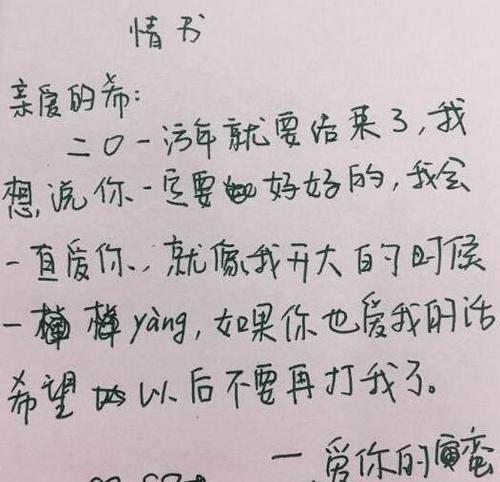 情书
亲爱的希:
二〇一污年就要结束了,我
想,说你一定要好好的,我会
一直爱你.,就像我开大的时候
一样yàng,如果你也爱我的话
希望以后不要再打我了。
一爱你的蛮